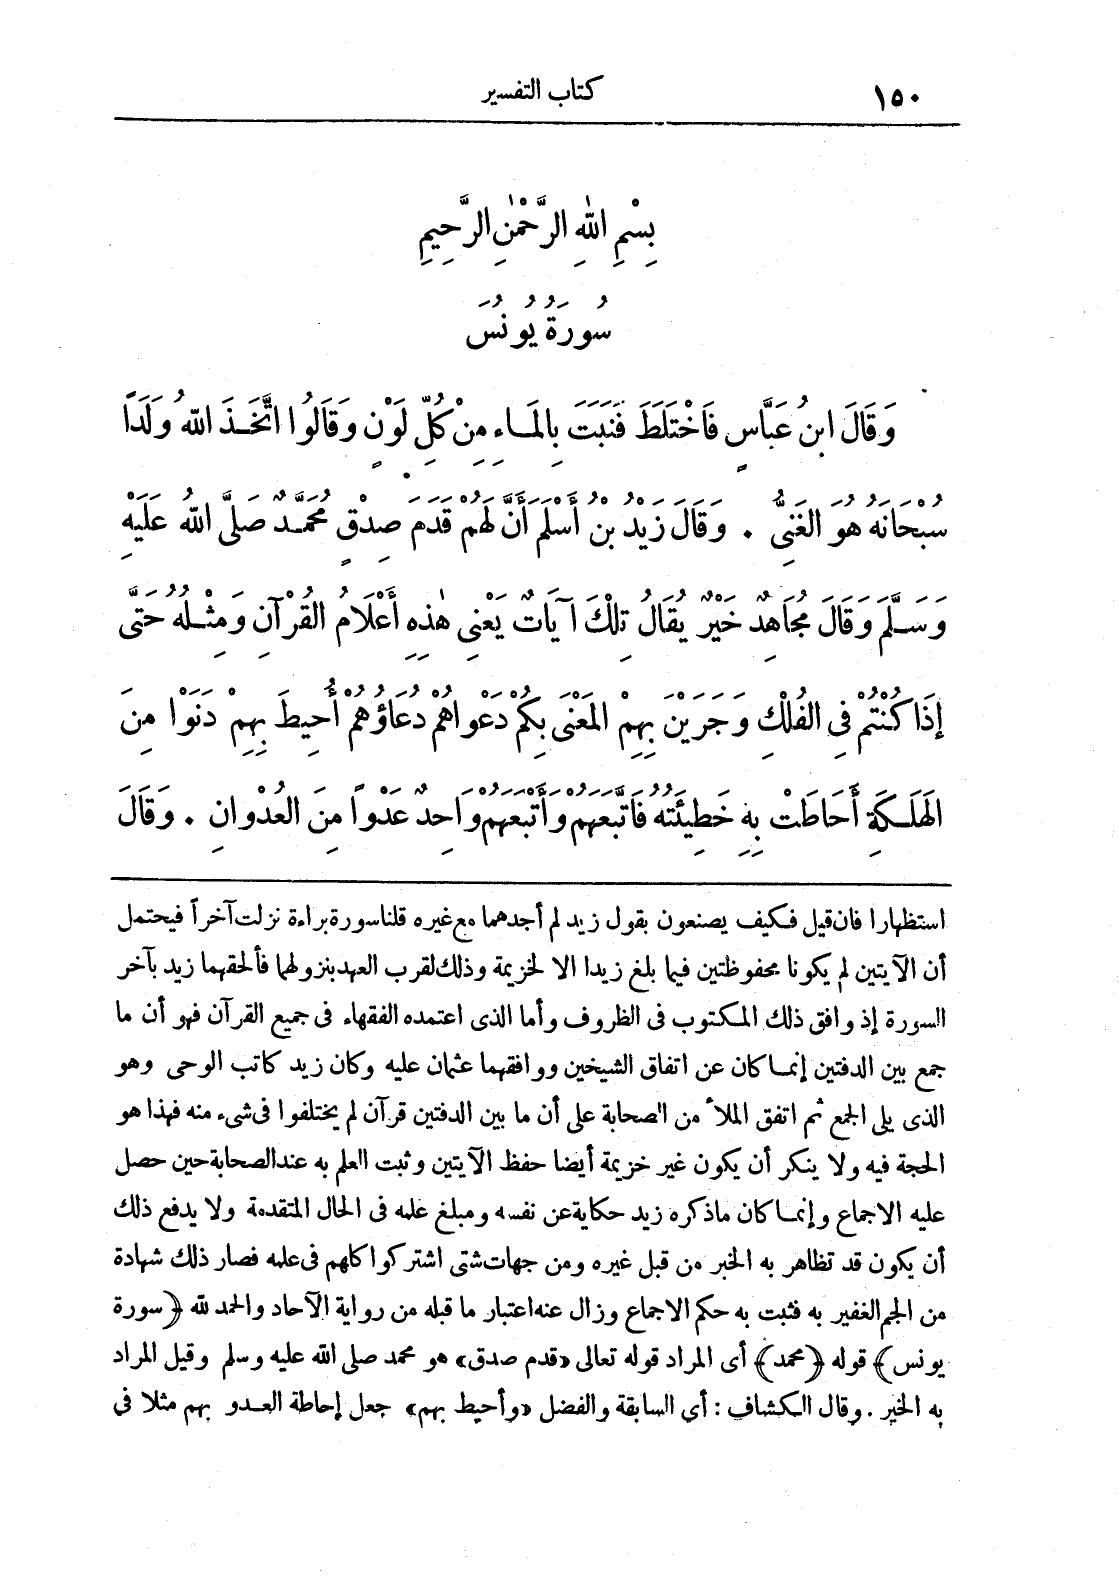 ١٥٠ كتاب التفسير
بِسْمِ اللهِ الرَّحْمٰنِ الرَّحِيمِ
سُورَةُ يُونُسَ
وَقَالَ ابنُ عَبَّاسٍ فَاخْتَلَطَ فَنَبَتَ بِالمَاءِ مِنْ كُلِّ لَوْنٍ وَقَالُوا اتَّخَذَ اللهُ وَلَدًا
سُبْحَانَهُ هُوَ الغَنِىُّ . وَقَالَ زَيْدُ بنُ أَسْلَمَ أَنَّ لَهُمْ قَدَمَ صِدْقٍ مُحَمَّدٌ صَلَّى اللهُ عَلَيْهِ
وَسَلَّمَ وَقَالَ مُجَاهِدٌ خَيْرٌ يُقَالُ تِلْكَ آيَاتُ يَعْنِى هٰذِهِ أَعْلَامُ القُرْآنِ وَمِثْلُهُ حَتَّى
إِذَا كُنْتُمْ فِى الفُلْكِ وَجَرَيْنَ بِهِمْ المَعْنَى بِكُمْ دَعْوَاهُمْ دُعَاؤُهُمْ أُحِيطَ بِهِمْ دَنَوْا مِنَ
الهَلَكَةِ أَحَاطَتْ بِهِ خَطِيئَتُهُ فَاتَّبَعَهُمْ وَأَتْبَعَهُمْ وَاحِدٌ عَدْوًا مِنَ العُدْوَانِ . وَقَالَ
استظهارا فان قيل فكيف يصنعون بقول زيد لم أجدهما مع غيره قلنا سورة براءة نزلت آخراً فيحتمل
أن الآيتين لم يكونا محفوظتين فيما بلغ زيدا الا لخزيمة وذلك لقرب العهد بنزولهما فألحقهما زيد بآخر
السورة إذ وافق ذلك المكتوب فى الظروف وأما الذى اعتمده الفقهاء فى جميع القرآن فهو أن ما
جمع بين الدفتين إنما كان عن اتفاق الشيخين ووافقهما عثمان عليه وكان زيد كاتب الوحى وهو
الذى يلى الجمع ثم اتفق الملأ من الصحابة على أن ما بين الدفتين قرآن لم يختلفوا فى شىء منه فهذا هو
الحجة فيه ولا ينكر أن يكون غير خزيمة أيضا حفظ الآيتين وثبت العلم به عند الصحابة حين حصل
عليه الاجماع وإنما كان ماذكره زيد حكاية عن نفسه ومبلغ علمه فى الحال المتقدمة ولا يدفع ذلك
أن يكون قد تظاهر به الخبر من قبل غيره ومن جهات شتى اشتركوا كلهم فى علمه فصار ذلك شهادة
من الجم الغفير به فثبت به حكم الاجماع وزال عنه اعتبار ما قبله من رواية الآحاد والحمد لله ﴿سورة
يونس﴾ قوله ﴿محمد﴾ أى المراد قوله تعالى «قدم صدق» هو محمد صلى الله عليه وسلم وقيل المراد
به الخير . وقال الكشاف : أي السابقة والفضل «وأحيط بهم» جعل إحاطة العدو بهم مثلا فى